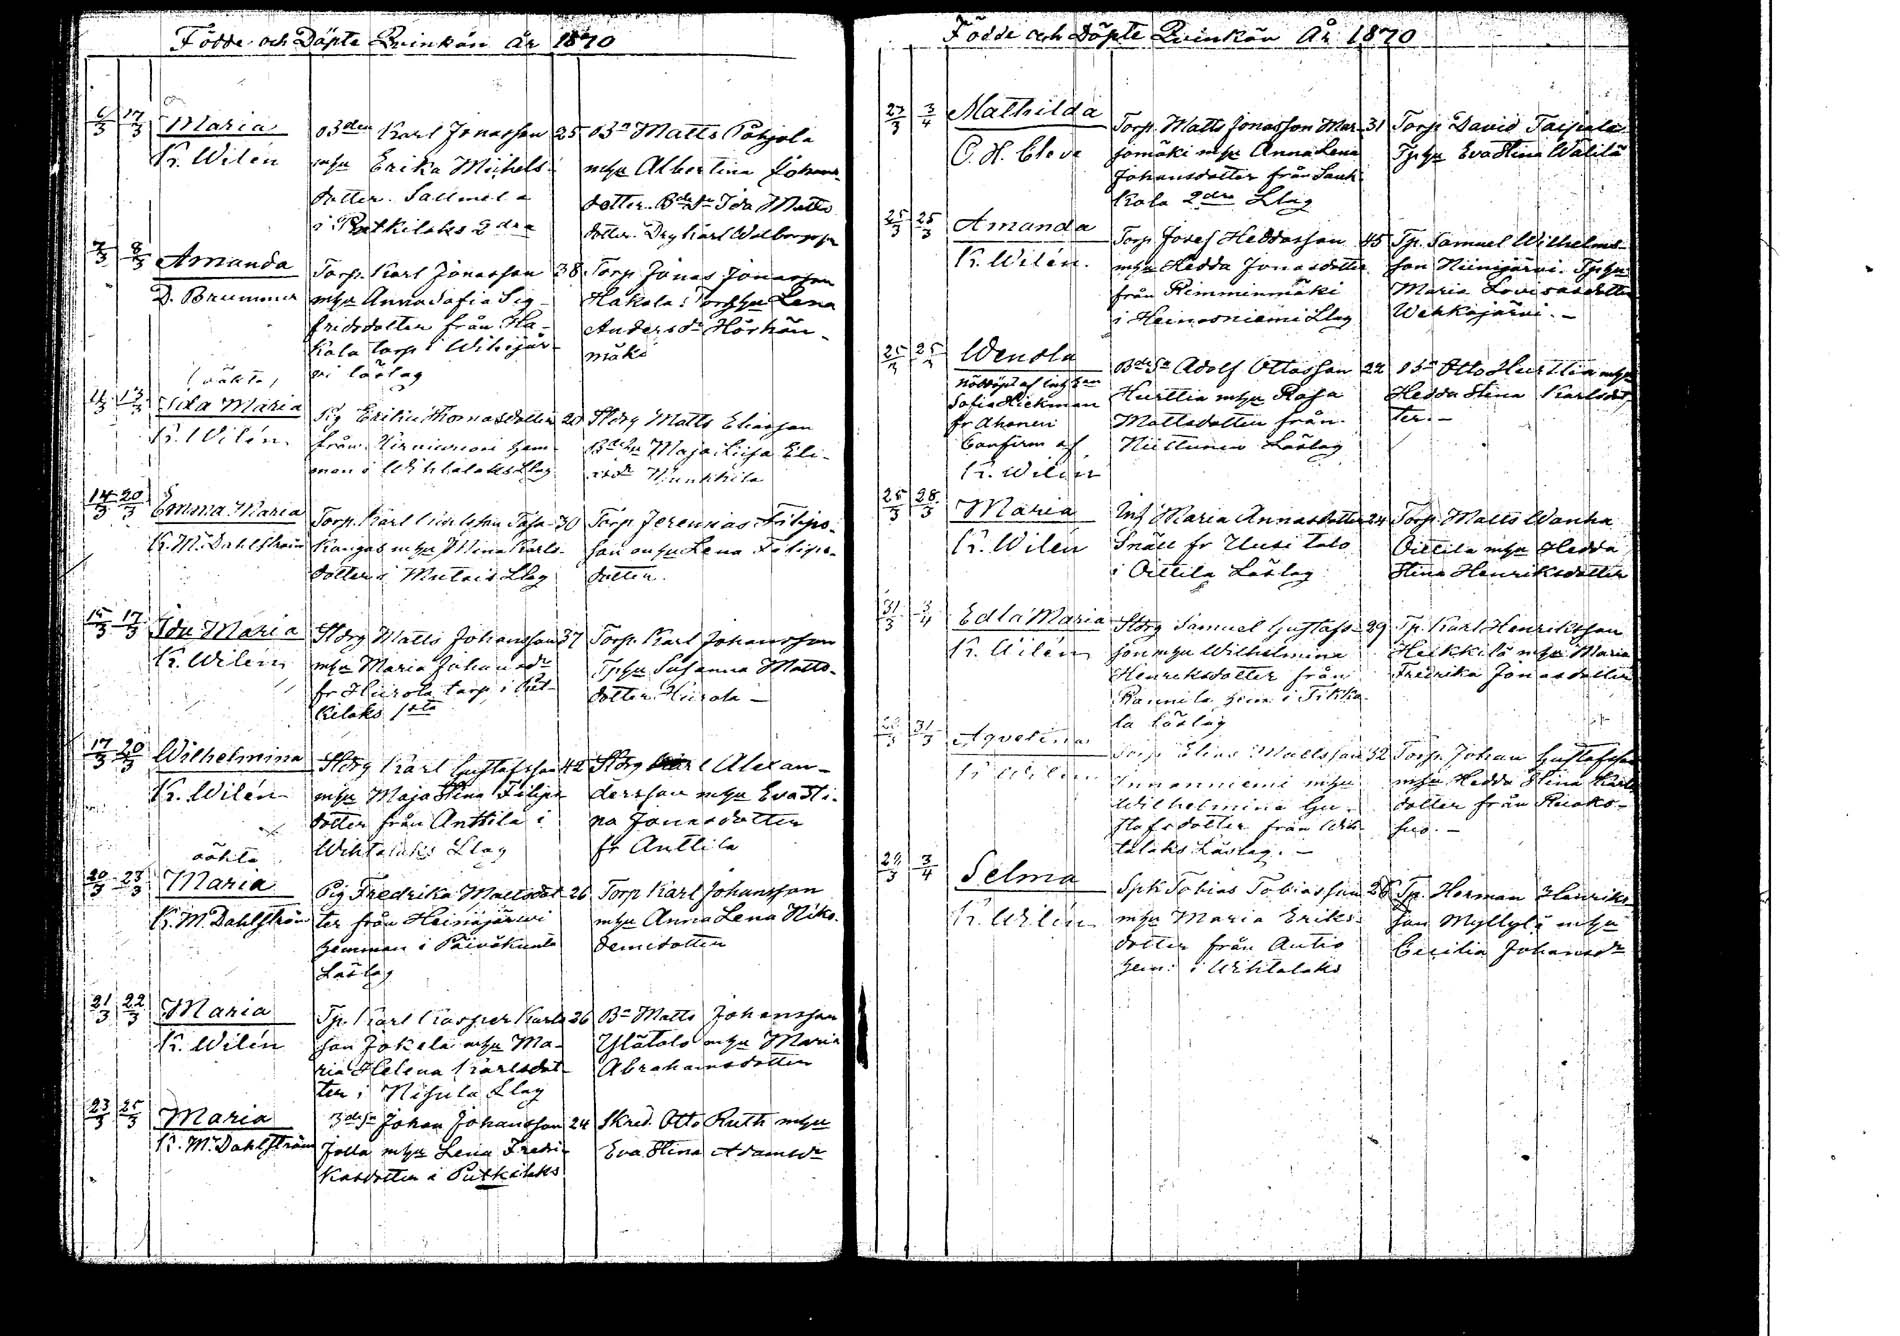 Födde och Döpte Qvinkön år 1870
6/3 17/3 Maria
K. Wilén
Bden Karl Jonasson 25
mhu Erika Michels-
dotter Sallmela
i Putkilaks 2dra
Bn Matts Pohjola
mhu Albertina Johans-
dotter. Bde Sn Ida Matts
dotter. Drg Karl
7/3 8/3 Amanda
D. Brummer
Torp. Karl Jonasson 38
mhu Anna Sofia Sig-
fridsdotter från Ha-
kola torp i Wihijär-
vi läslag
Torp Jonas Jonasson
Hakola: Torphu Lena
Anders dr Hörhän-
mäki
(oäkta)
11/3 13/3 Ida Maria
K. Wilén
Pig Erika Thomasdotter 20
från hem-
man i Wihtalaks Llag
Stdrg Matts Eliasson
Maja Lisa Eli-
asdr Munkkila
14/3 20/3 Emma Maria
K. M. Dahlström
Torp. Karl Karlsson Taja- 30
kangas mhu Stina Karls-
dotter i Mutais Llag
Torp Jeremias Filips-
son mhu Lena Filips-
dotter.
15/3 17/3 Ida Maria
K. Wilén
Stdrg Matts Johansson 37
mhu Maria Johansdr
fr Hurola torp i Put-
kilaks 1sta
Torp. Karl Johansson
Tphu Susanna Matts-
dotter Hurola –
17/3 20/3 Wilhelmina
K. Wilén
Stdrg Karl Gustafsson 42
mhu Maja Stina Filips
dotter från Anttila i
Wihtalaks Llag
Stdrg Karl Alexan-
dersson mhu Eva Sti-
na Jonasdotter
fr Anttila
oäkta
20/3 23/3 Maria
K. M. Dahlström
Pig Fredrika Mattsdot- 26
ter från Heinijärwi
hemman i Päiväkunta
Läslag
Torp Karl Johansson
mhu Anna Lena Niko-
demidotter
21/3 22/3 Maria
K. Wilén
Tp. Karl Kasper Karls 36
son Jokela mhu Ma-
ria Helena Karlsdot-
ter i Nisula Llag
Bn Matts Johansson
Ylätalo mhu Maria
Abrahamsdotter
23/3 25/3 Maria
K. M. Dahlström
Bde Sn Johan Johansson 24
Jolla mhu Lena Fredri-
kasdotter i Putkilaks
Skräd. Otto Ruth mhu
Eva Stina Adamsdr
Födde och Döpte Qvinkön År 1870
27/3 3/4 Mathilda
O. H. Cleve
Torp. Matts Jonasson Mar- 31
jomäki mhu Anna Lena
Johansdotter från Sauk-
kola 2dra Llag
Torp. David Taipale
Tphu Eva Stina Walilä
25/3 25/3 Amanda
K. Wilén.
Torp Josef Heddasson 45
mhu Hedda Jonasdotter
från Rimminmäki
i Heinosniemi Llag
Tp. Samuel Wilhelms-
son Niinijärvi. Tphu
Maria Lovisasdotter
Wehkajärvi. –
25/3 25/3 Wendla
nöddöpt af
Sofia Hickman
fr Ahonen
Confirm af
K. Wilén
Bde Sn Adolf Ottosson 22
Hurttia mhu Rosa
Mattsdotter från
Niittunen Läslag
Bn Otto Hurttia mhu
Hedda Stina Karlsdot-
ter. –
25/3 28/3 Maria
K. Wilén
Inh Maria Annasdotter 24
Snäll fr Uusi talo
i Oittila Läslag
Torp. Matts Wanha
Oittila mhu Hedda
Stina Henriksdotter
31/3 3/4 Edla Maria
K. Wilén
Stdrg Samuel Gustafs- 29
son mhu Wilhelmina
Henriksdotter från
Rannila hem i Tikka
la läslag
Tp. Karl Henriksson
Heikkilä mhu Maria
Fredrika Jonasdotter
31/3 Agvelina
K Wilén
Torp Elias Mattsson 32
Innanniemi mhu
Wilhelmina Gu-
stafsdotter från Wih-
talaks Läslag. –
Torp. Johan Gustafsson
mhu Hedda Stina Karls
dotter från Ruoko-
suo. –
29/3 3/4 Selma
K. Wilén
Spk Tobias Tobiasson 28
mhu Maria Eriks-
dotter från Autio
hem: i Wihtalaks
Tp. Herman Henriks
son Myllylä mhu
Cecilia Johansdr